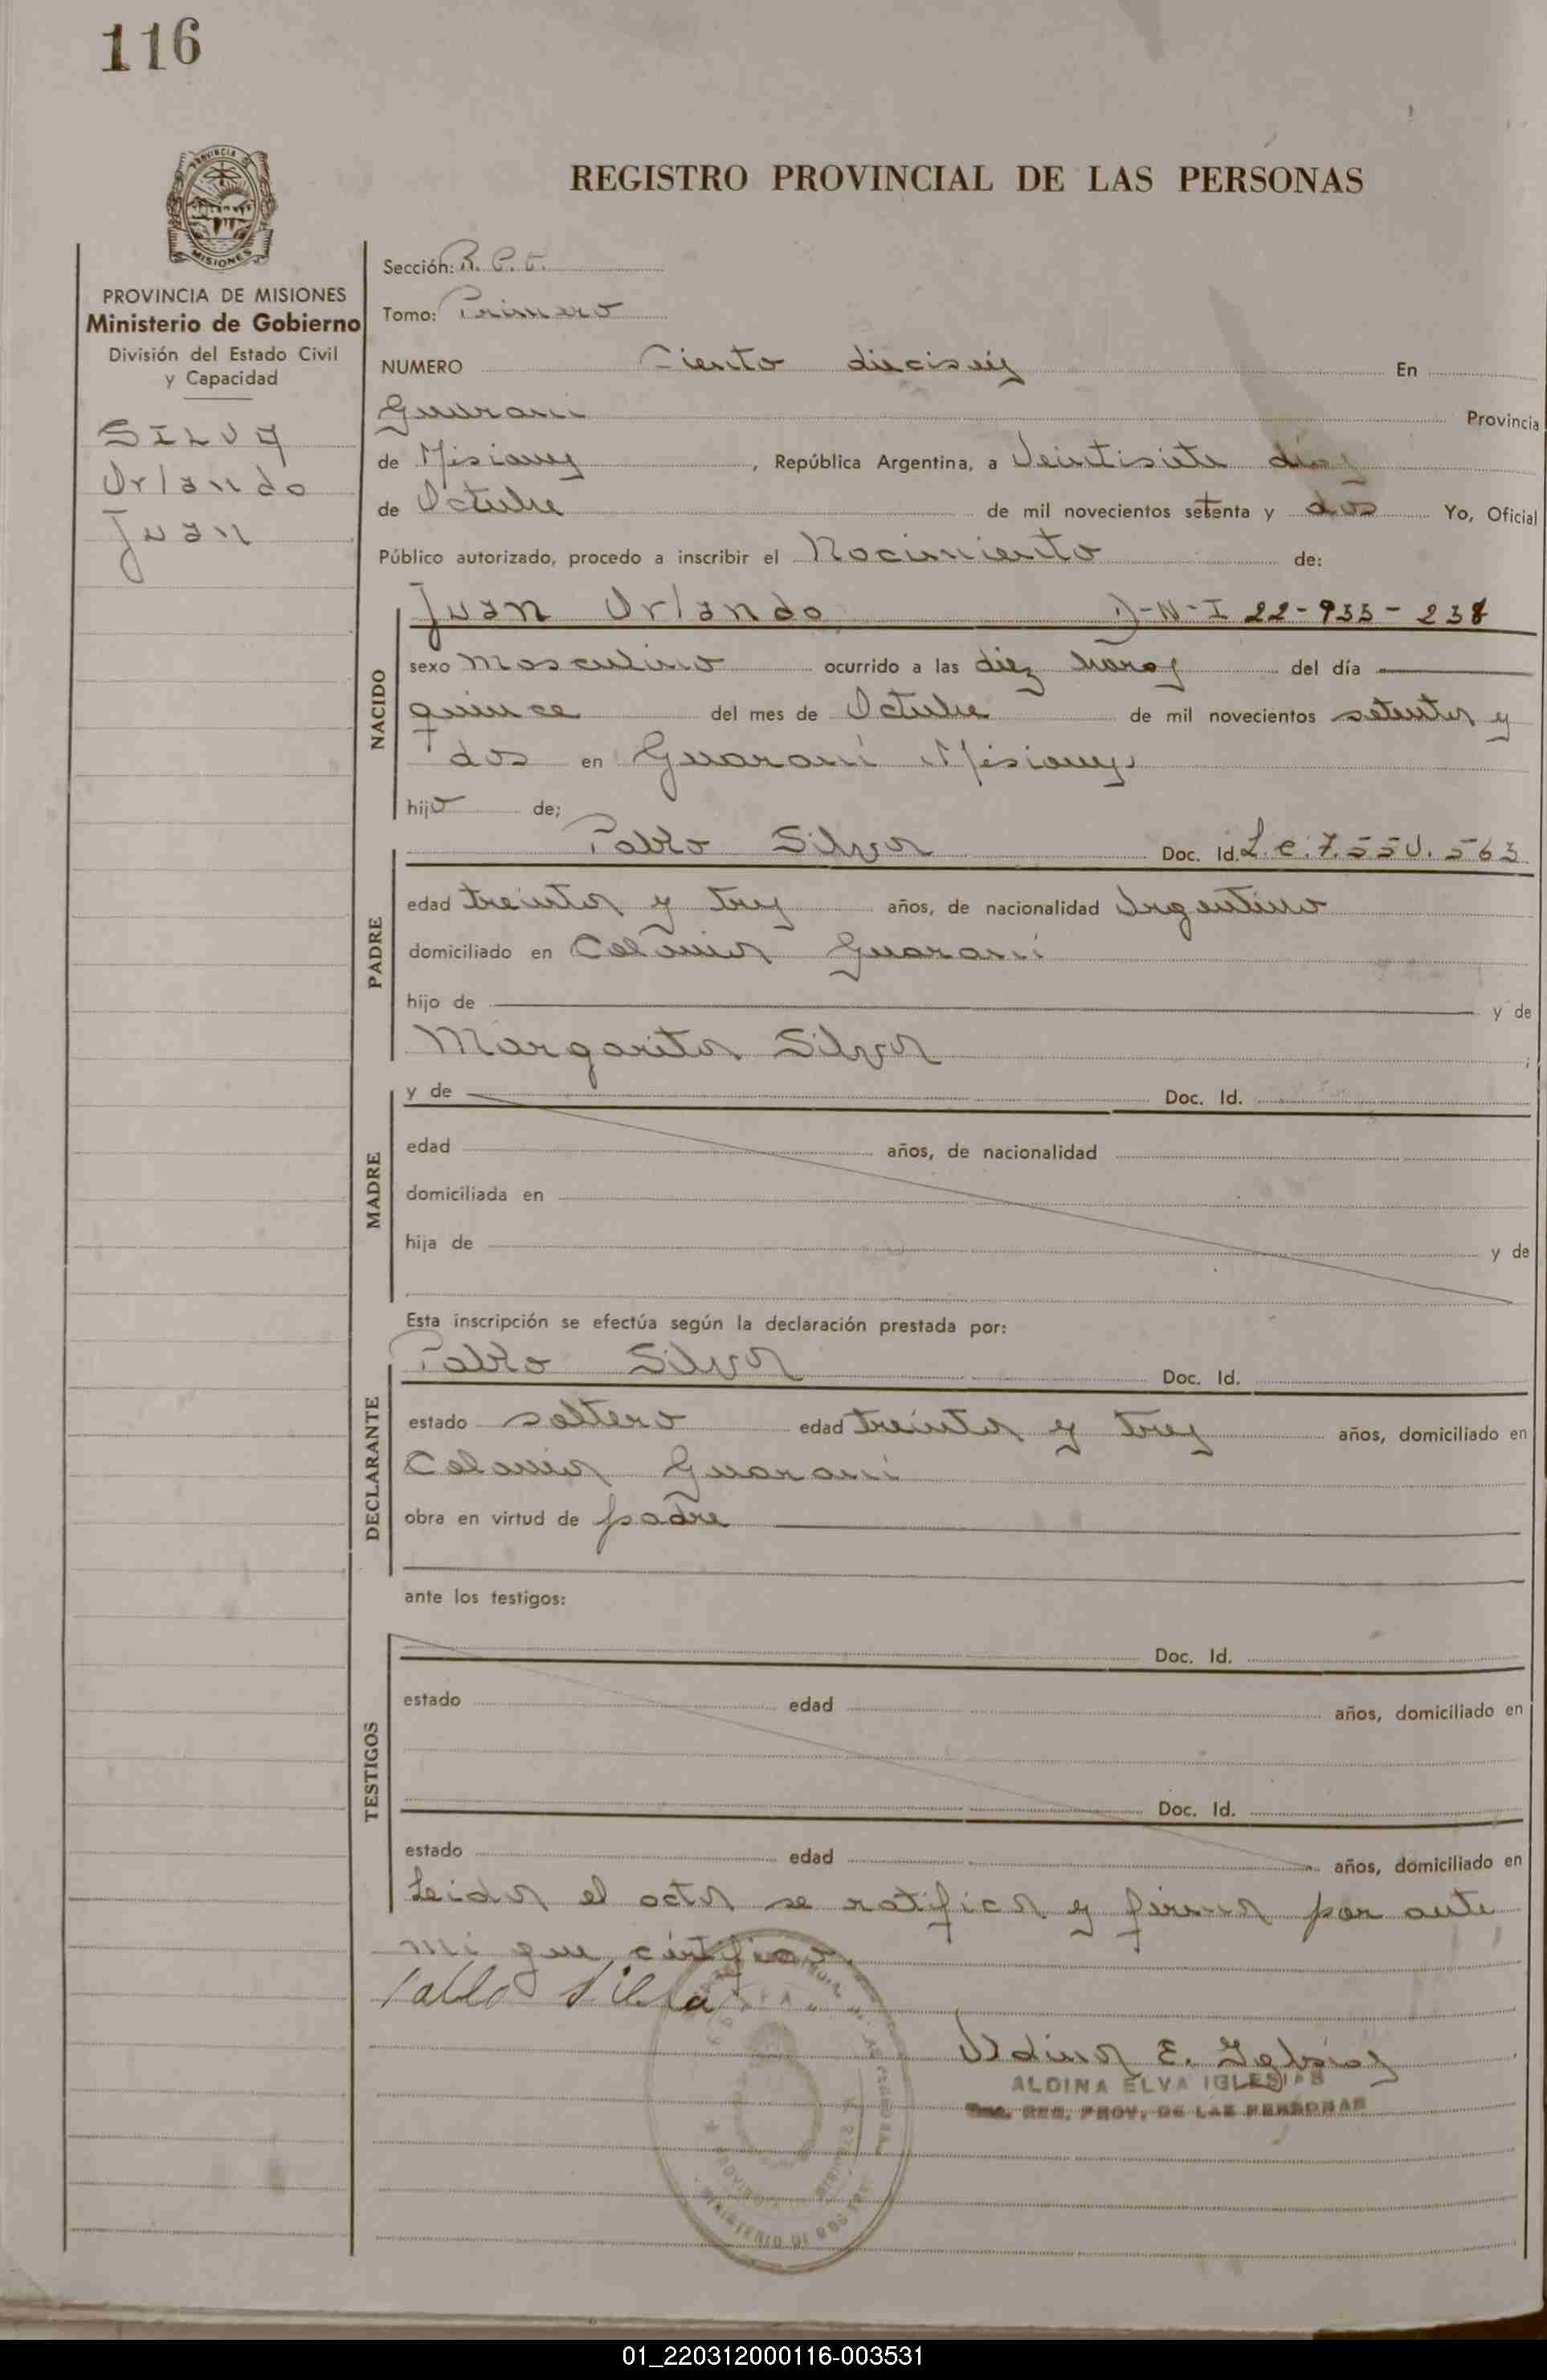 116
PROVINCIA DE
MISIONES
REGISTRO PROVINCIAL DE LAS PERSONAS
PROVINCIA DE MISIONES
Ministerio de Gobierno
División del Estado Civil
y Capacidad
SILVA
Orlando
Juan
Sección:
Tomo: Primero
NUMERO Ciento dieciseis En
Guarani Provincia
de Misiones, República Argentina, a Veintisiete días
de Octubre de mil novecientos setenta y dos Yo, Oficial
Público autorizado, procedo a inscribir el Nacimiento de:
NACIDO
Juan Orlando D-N-I 22-933-238
sexo Masculino ocurrido a las diez horas del día
quince del mes de Octubre de mil novecientos setenta y
dos en Guaraní Misiones
hijo de;
PADRE
Pablo Silva Doc. Id. L.e.7.550.563
edad treinta y tres años, de nacionalidad Argentino
domiciliado en Colonia Guaraní
hijo de y de
Margarita Silva ;
MADRE
y de Doc. Id.
edad años, de nacionalidad
domiciliada en
hija de y de
Esta inscripción se efectúa según la declaración prestada por:
DECLARANTE
Pablo Silva Doc. Id.
estado soltero edad treinta y tres años, domiciliado en
Colonia Guaraní
obra en virtud de padre
ante los testigos:
TESTIGOS
Doc. Id.
estado edad años, domiciliado en
Doc. Id.
estado edad años, domiciliado en
Leida el acta se ratifica y firma por ante
mi que certifico.
Pablo Silva
Aldina E. Iglesias
ALDINA ELVA IGLESIAS
REG. PROV. DE LAS PERSONAS
MINISTERIO DE
01_220312000116-003531